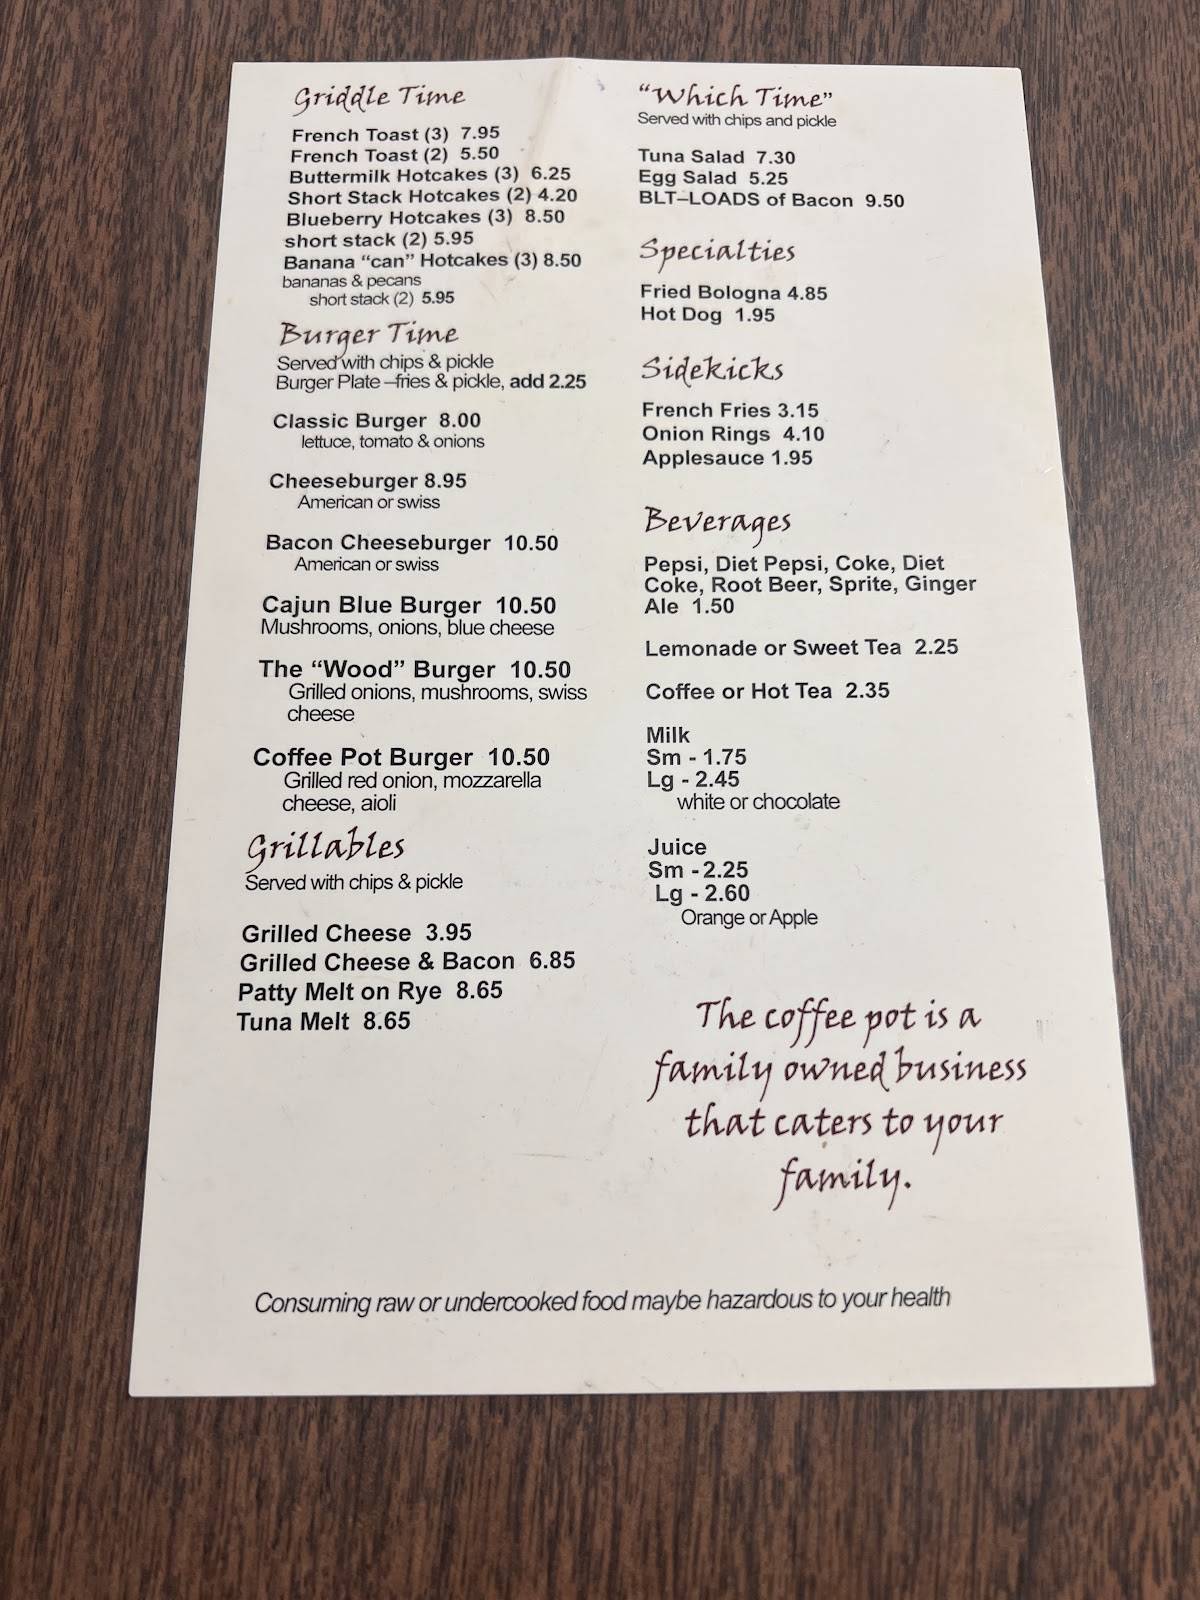 Griddle Time
French Toast (3) 7.95
French Toast (2) 5.50
Buttermilk Hotcakes (3) 6.25
Short Stack Hotcakes (2) 4.20
Blueberry Hotcakes (3) 8.50
short stack (2) 5.95
Banana “can” Hotcakes (3) 8.50
bananas & pecans
short stack (2) 5.95
Burger Time
Served with chips & pickle
Burger Plate –fries & pickle, add 2.25
Classic Burger 8.00
lettuce, tomato & onions
Cheeseburger 8.95
American or swiss
Bacon Cheeseburger 10.50
American or swiss
Cajun Blue Burger 10.50
Mushrooms, onions, blue cheese
The “Wood” Burger 10.50
Grilled onions, mushrooms, swiss
cheese
Coffee Pot Burger 10.50
Grilled red onion, mozzarella
cheese, aioli
Grillables
Served with chips & pickle
Grilled Cheese 3.95
Grilled Cheese & Bacon 6.85
Patty Melt on Rye 8.65
Tuna Melt 8.65
“Which Time”
Served with chips and pickle
Tuna Salad 7.30
Egg Salad 5.25
BLT–LOADS of Bacon 9.50
Specialties
Fried Bologna 4.85
Hot Dog 1.95
Sidekicks
French Fries 3.15
Onion Rings 4.10
Applesauce 1.95
Beverages
Pepsi, Diet Pepsi, Coke, Diet
Coke, Root Beer, Sprite, Ginger
Ale 1.50
Lemonade or Sweet Tea 2.25
Coffee or Hot Tea 2.35
Milk
Sm - 1.75
Lg - 2.45
white or chocolate
Juice
Sm - 2.25
Lg - 2.60
Orange or Apple
The coffee pot is a
family owned business
that caters to your
family.
Consuming raw or undercooked food maybe hazardous to your health